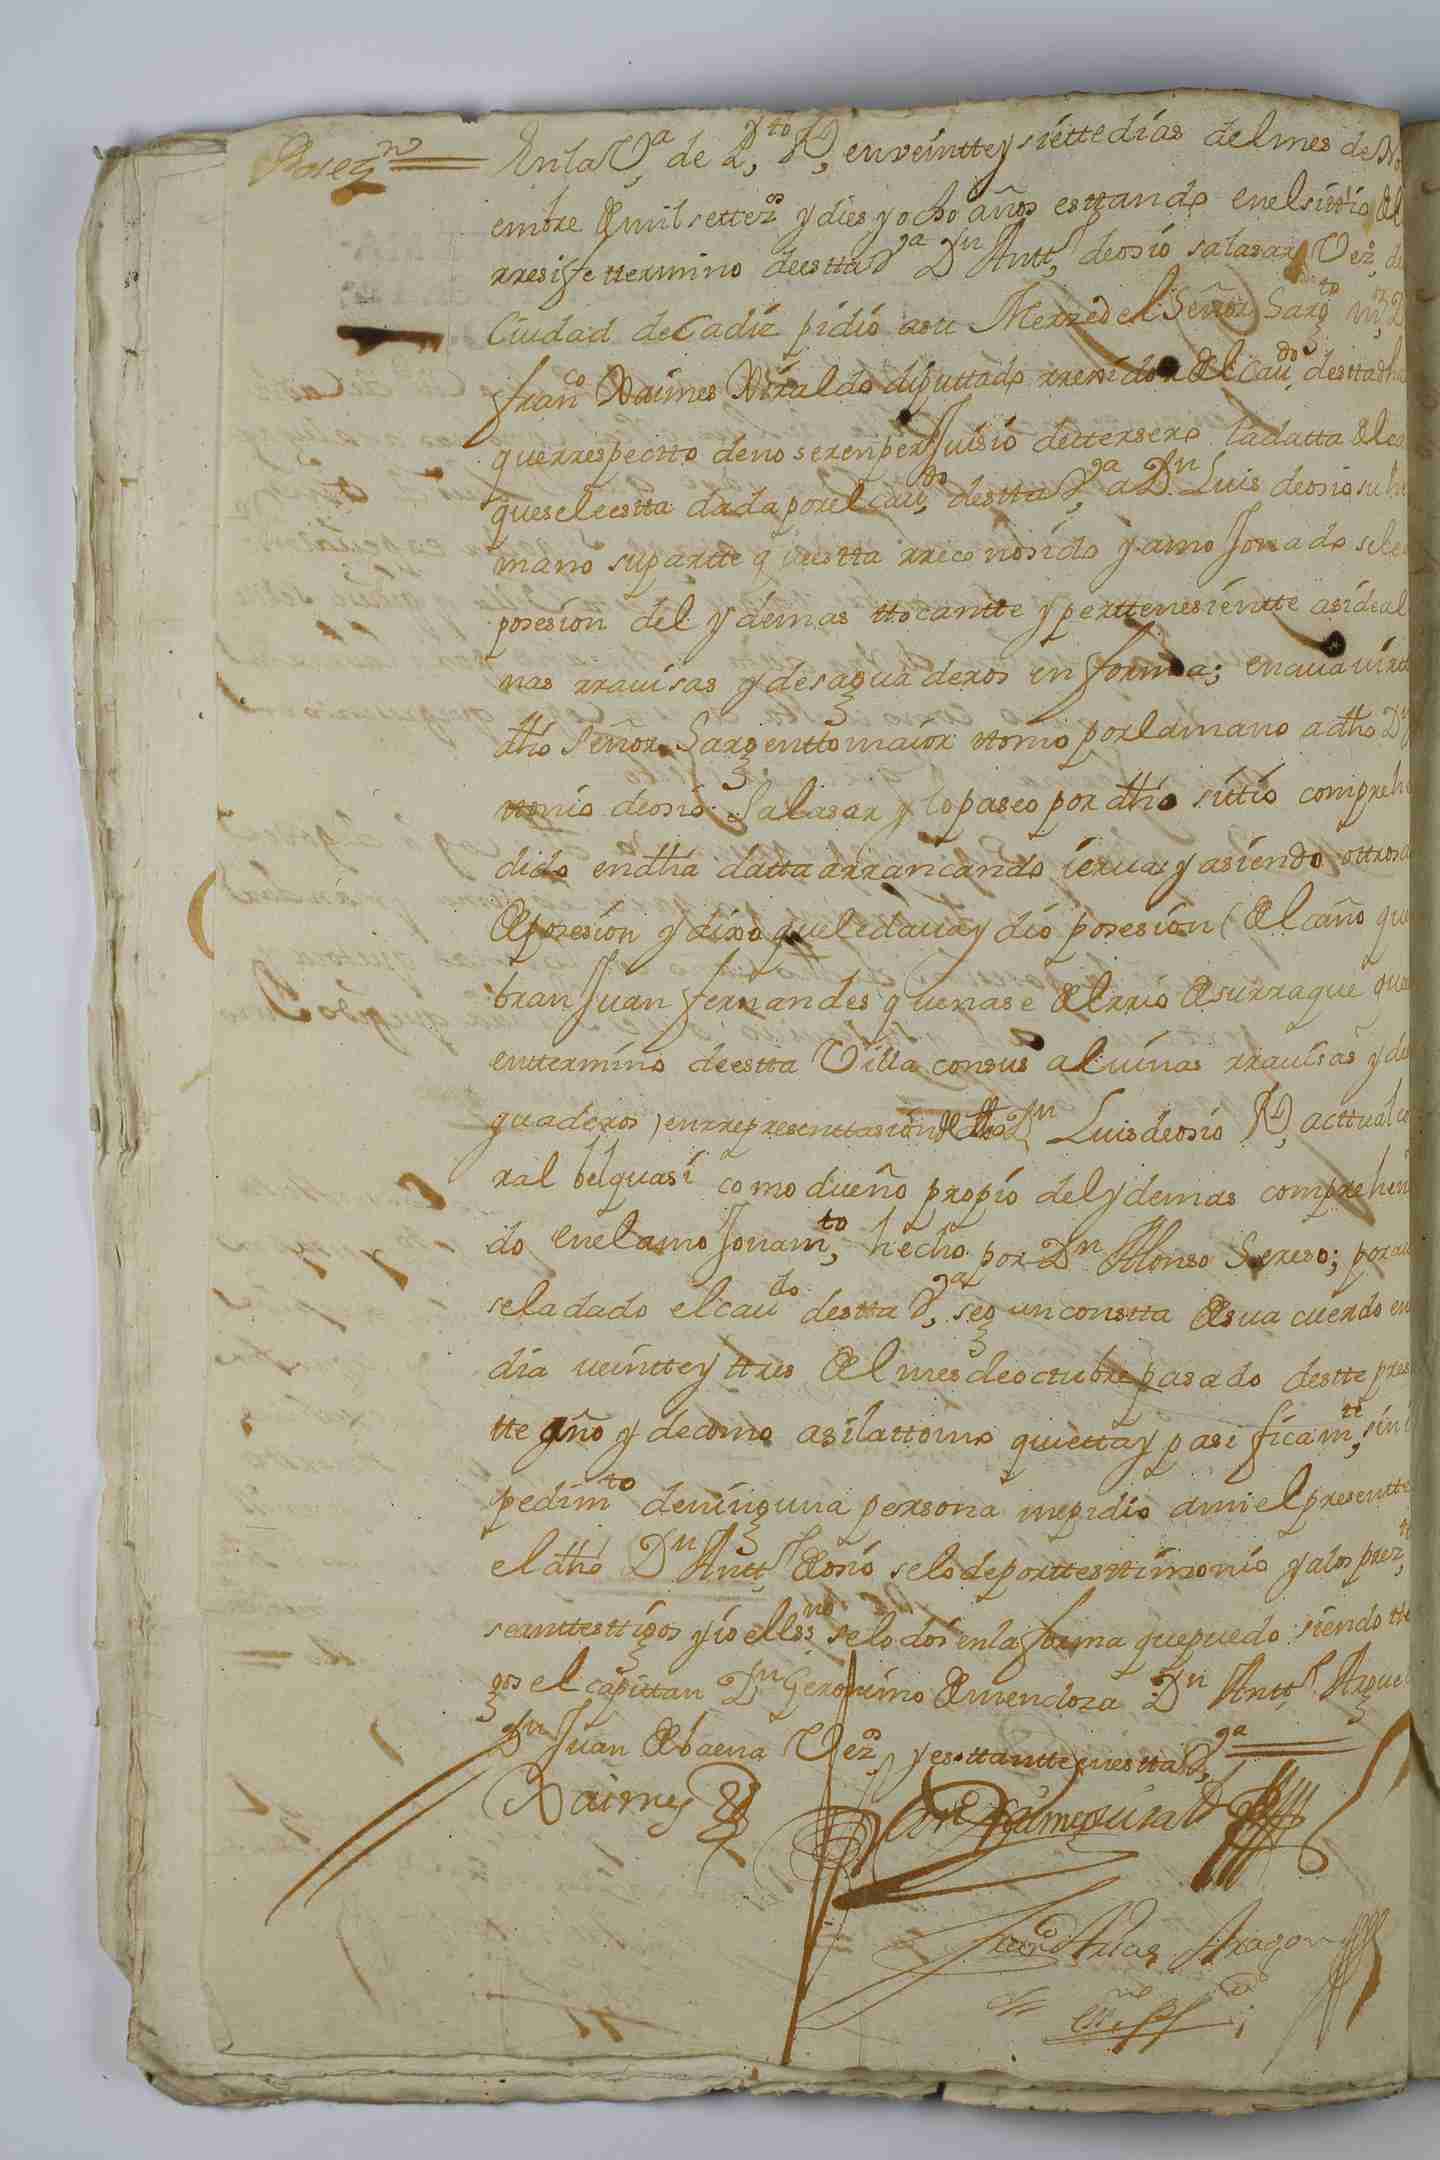 Posezn
En la Va de Pto R, en veintte y siette dias del mes de No
embre de mil settezos y dies y ocho años esttando en el sittio del
rresife ttermino de estta Va Dn Antto de osio salasar Vezo de
Ciudad de Cadiz pidio a su Merzed el Señor Sargto mor D
franco Baines Viraldo diputtado rrexidor del Caudo desta dha
que rrespectto de no ser en perjuisio de ttersero la datta del ca
que se le estta dada por el caudo destta Va a Dn Luis de osio su her
mano su partte q ve estta rreconosido y amojonado se le
posesion del y demas ttocantte y perttenesientte asi de al
nas rrauisas y desaguaderos en forma; en cua uirtt
dho Señor Sargentto maior ttomo por la mano a dho Dn
ttonio de osio Salasar y lo paseo por dho sitio comprehe
dido en dha datta arrancando ieruas y asiendo ottros a
de posesion y dixo que le daua y dio posesion (del caño que
bran Juan fernandes que nase del rrio de surraque que
en ttermino de estta Villa con sus aluinas rrauisas y de
guaderos) en rrepresenttasion de dho Dn Luis de osio R, acttual co
ral belquasi como dueño propio del y demas comprehen
do en el amojonamto hecho por Dn Alonso Sereso; por au
sela dado el caudo destta Va segun constta de su a cuerdo en
dia ueintte y ttres del mes de octubre pasado destte pres
tte año y de como asi la ttomo quietta y pasificamte sin i
pedimto de ninguna persona me pidio a mi el presentte
el dho Dn Antto de osio se lo de por ttesttimonio y a los preztes
sean ttesttigos y io el essno se lo doi en la forma que puedo siendo tte
gos el capittan Dn Geronimo de mendoza Dn Antto Argue
Dn Juan de baena Vezos y esttantte en estta Va
Baines
Franco Arias Aragon
essno ppco